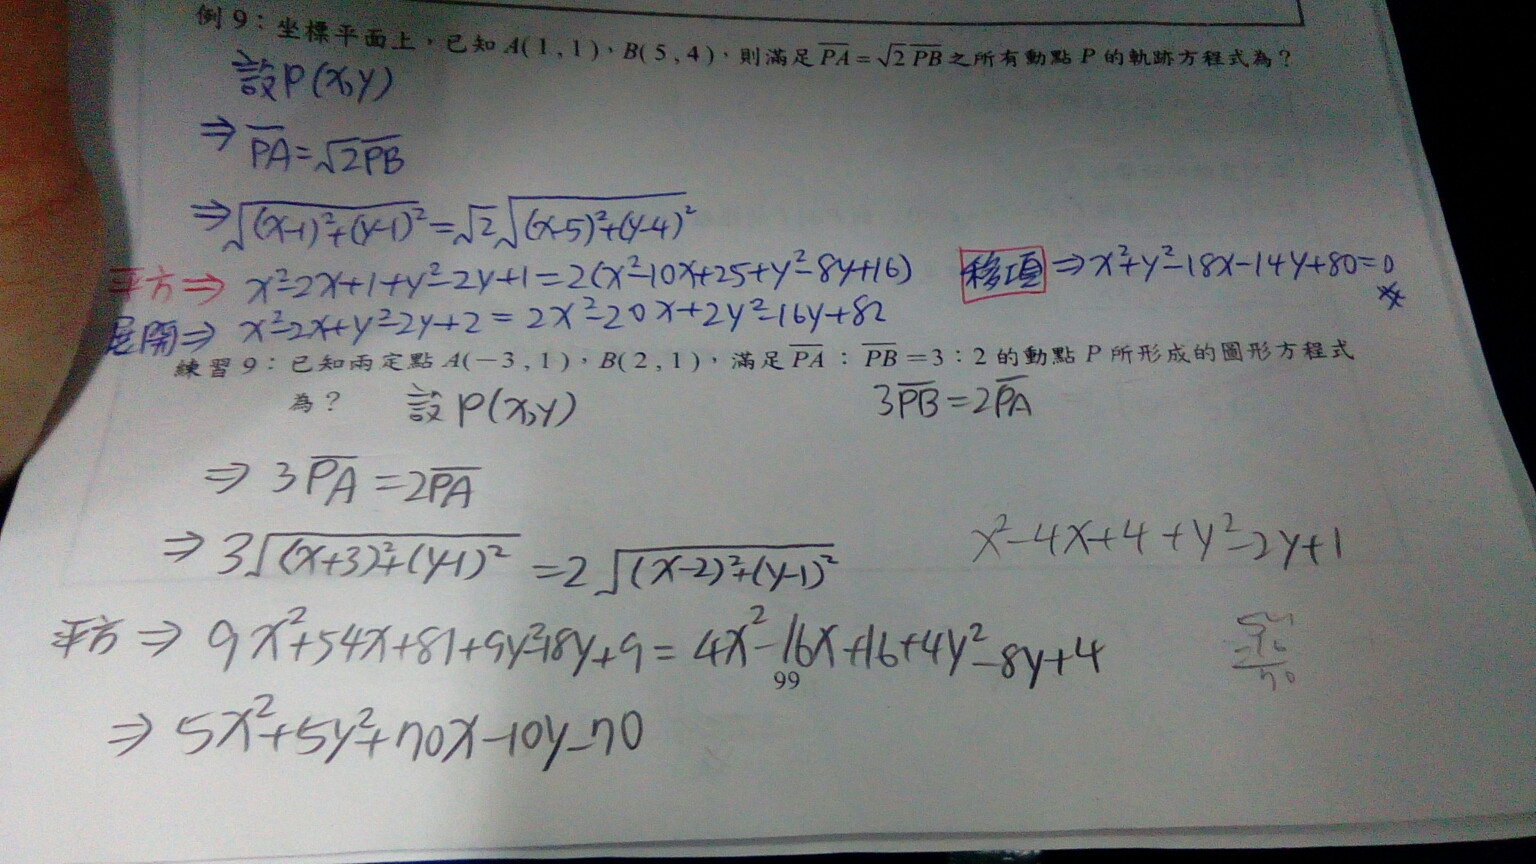 例 9：坐標平面上，已知 A(1,1)、B(5,4)，則滿足 \overline{PA}=√2 \overline{PB} 之所有動點 P 的軌跡方程式為？
設P(x,y)
⇒ \overline{PA}=√2\overline{PB}
⇒ √((x-1)²+(y-1)²)=√2√((x-5)²+(y-4)²)
平方⇒ x²-2x+1+y²-2y+1=2(x²-10x+25+y²-8y+16) 移項⇒x²+y²-18x-14y+80=0
展開⇒ x²-2x+y²-2y+2=2x²-20x+2y²-16y+82
練習 9：已知兩定點 A(-3,1)，B(2,1)，滿足 \overline{PA}：\overline{PB}=3：2 的動點 P 所形成的圖形方程式
為？ 設P(x,y) 3\overline{PB}=2\overline{PA}
⇒ 3\overline{PA}=2\overline{PA}
⇒ 3√((x+3)²+(y-1)²)=2√((x-2)²+(y-1)²) x²-4x+4+y²-2y+1
平方⇒ 9x²+54x+81+9y²-18y+9=4x²-16x+16+4y²-8y+4
99
⇒ 5x²+5y²+70x-10y-70